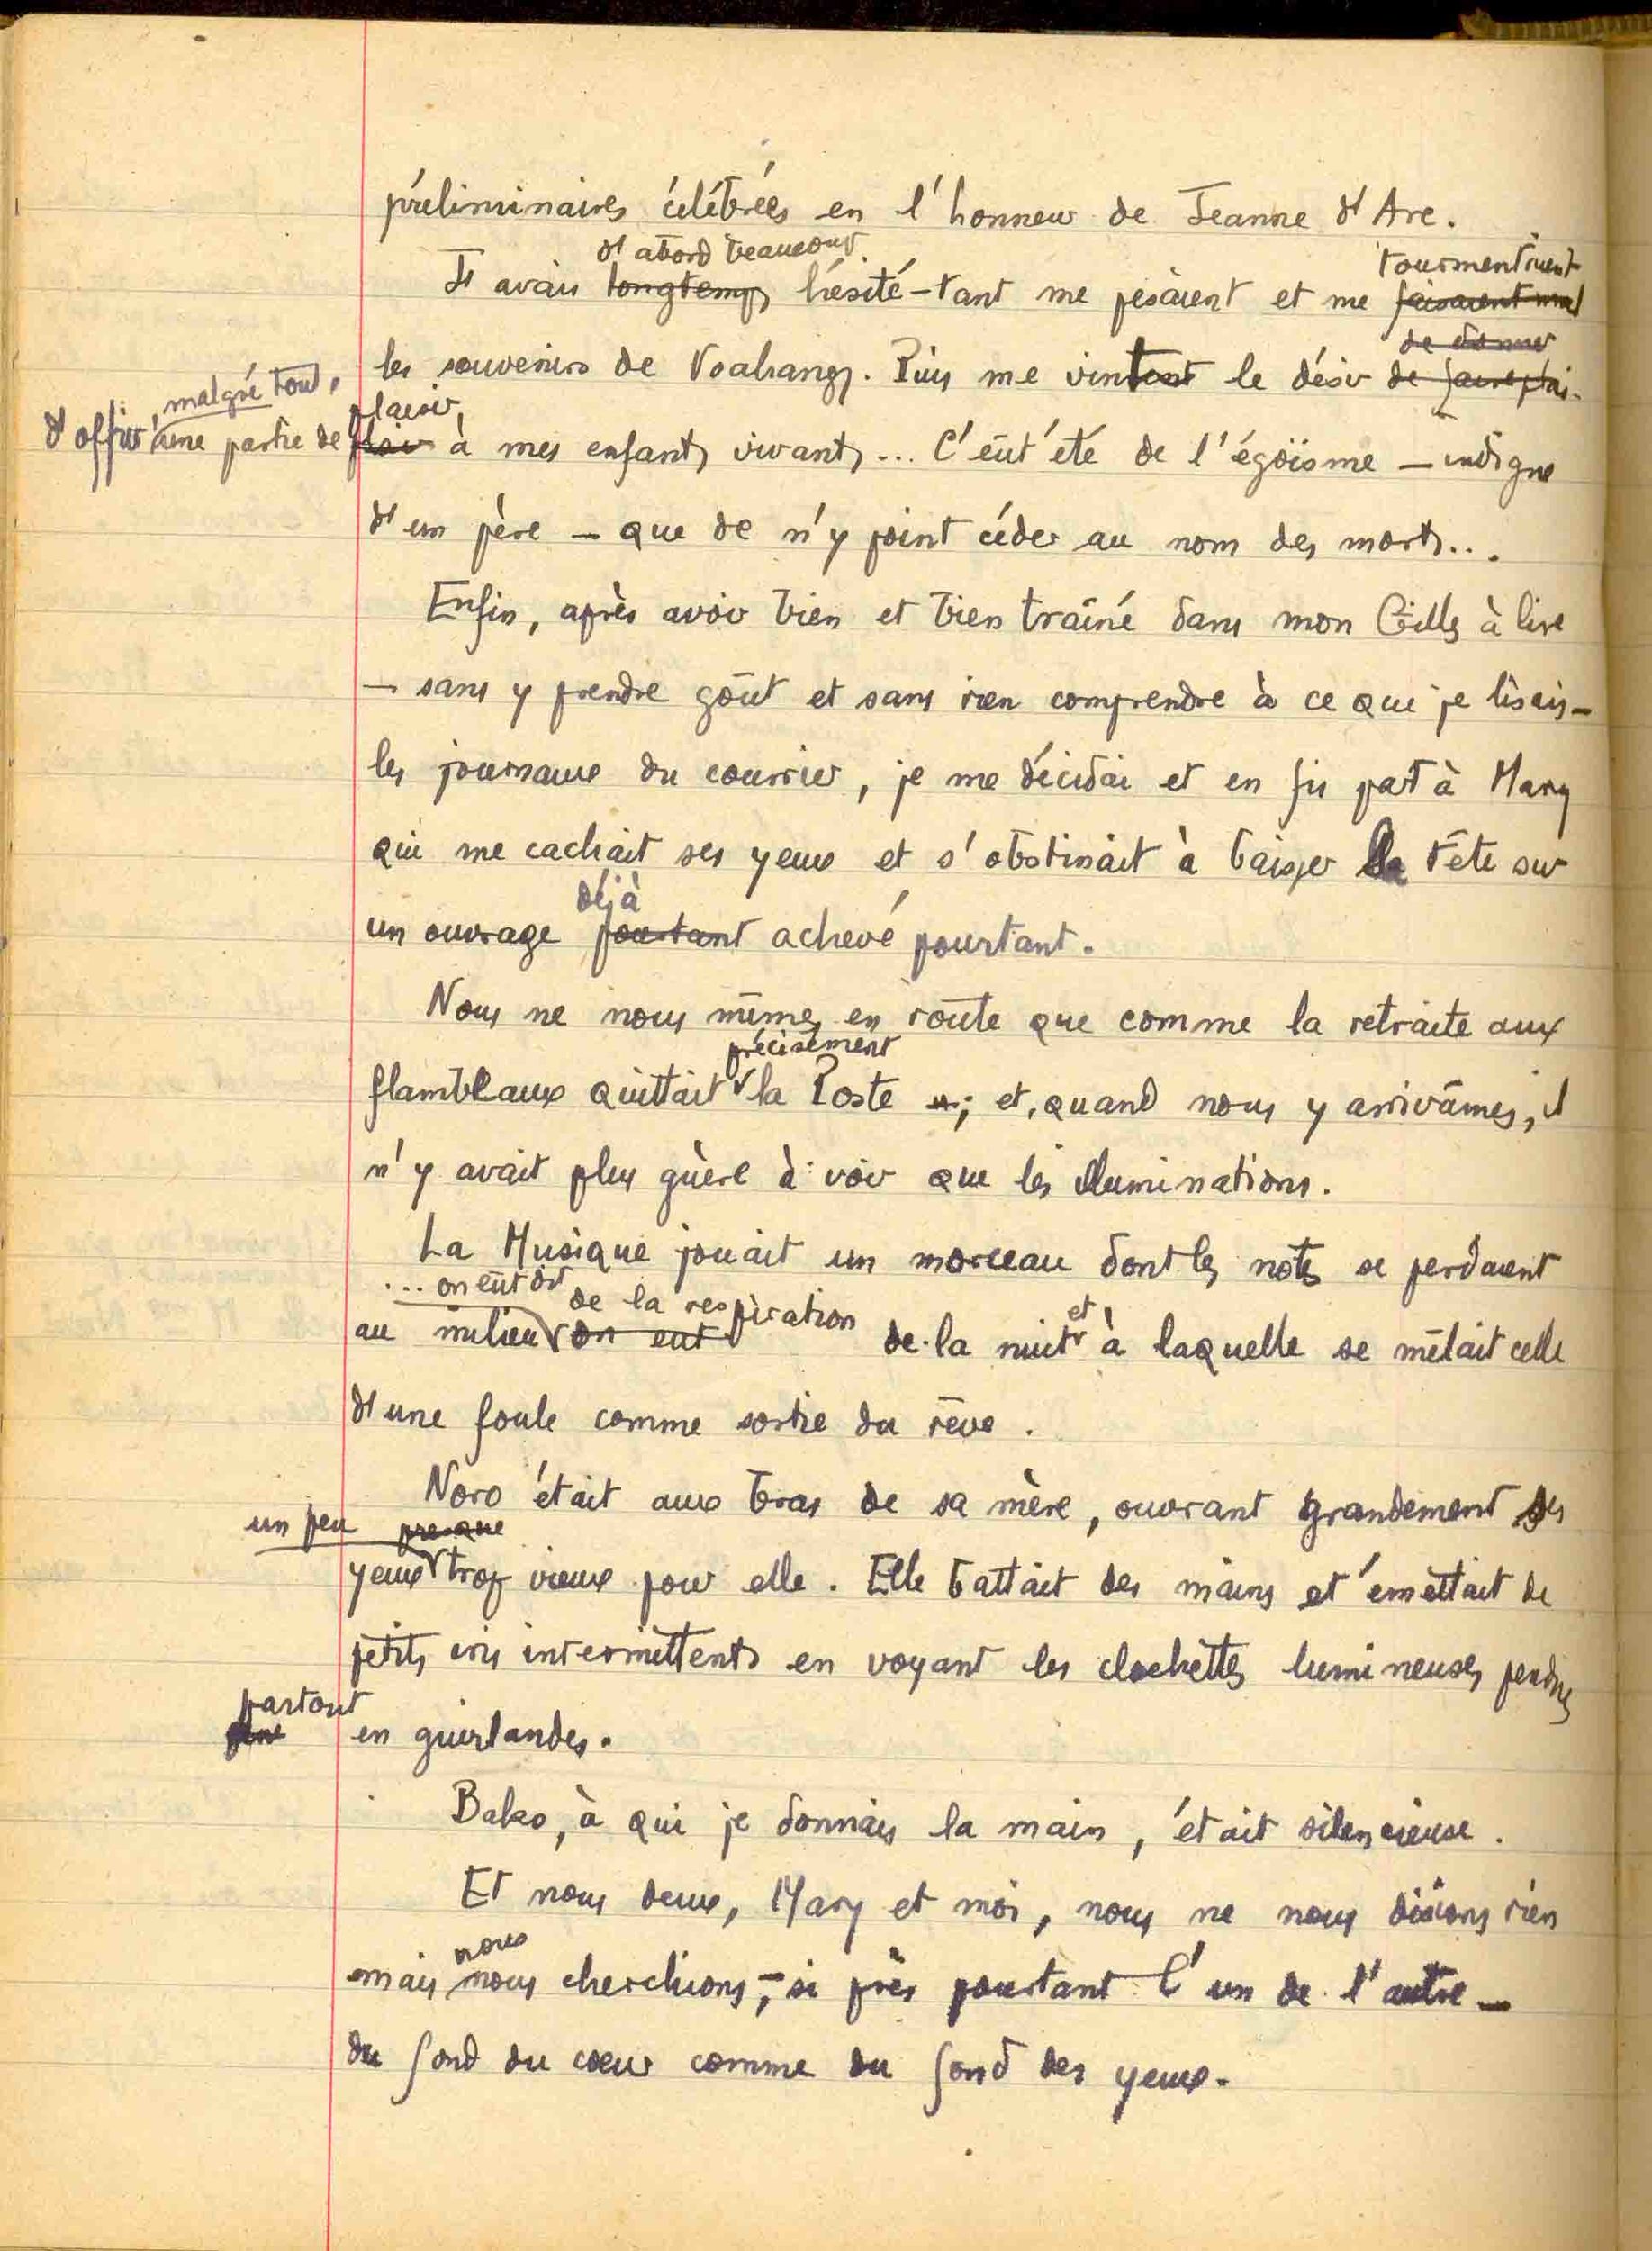 préliminaires célébrées en l'honneur de Jeanne d'Arc.
d'abord beaucoup
tourmentaient
J'avais longtemps hésité - tant me pesaient et me faisaient mal
de donner
les souvenirs de Voahangy. Puis me vint le désir de faire plai-
malgré tout,
plaisir
d'offrir une partie de
sir à mes enfants vivants... C'eût été de l'égoïsme — indigne
d'un père — que de n'y point céder au nom des morts...
Enfin, après avoir bien et bien traîné dans mon à lire
— sans y prendre goût et sans rien comprendre à ce que je lisais —
les journaux du courrier, je me décidai et en fis part à Mary
qui me cachait ses yeux et s'obstinait à baisser la tête sur
déjà
un ouvrage pourtant achevé pourtant.
Nous ne nous mîmes en route que comme la retraite aux
précisément
flambeaux quittait la Poste ; et, quand nous y arrivâmes, il
n'y avait plus guère à voir que les illuminations.
La Musique jouait un morceau dont les notes se perdaient
... on eût dit de la respiration
et
au milieu on eut de la nuit à laquelle se mêlait celle
d'une foule comme sortie du rêve.
Noro était aux bras de sa mère, ouvrant grandement des
un peu presque
yeux trop vieux pour elle. Elle battait des mains et émettait de
petits cris intermittents en voyant les clochettes lumineuses pendues
partout
en guirlandes.
Bako, à qui je donnais la main, était silencieuse.
Et nous deux, Mary et moi, nous ne nous disions rien
nous
mais nous cherchions, — si près pourtant l'un de l'autre —
du fond du cœur comme du fond des yeux.